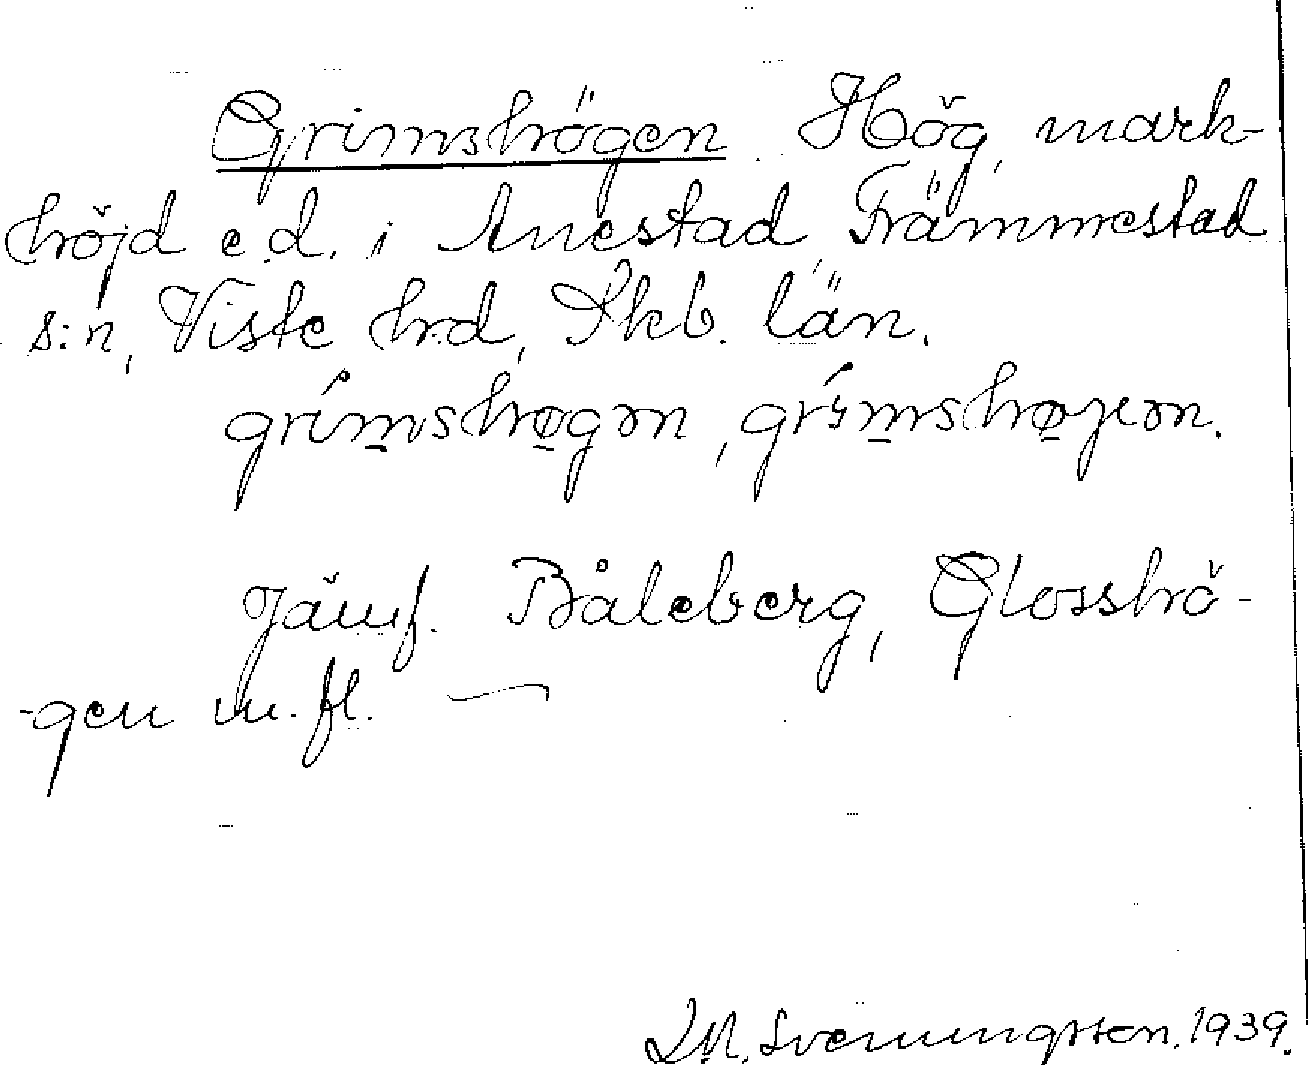 Grimshögen Hög, mark-
höjd e.d. i Anestad, Främmestad
s:n, Viste hrd, Skb. län.
grímshøgən, grímshøjen.
Jämf. Båleberg, Glosshö-
-gen m.fl.
Svenungsson. 1939.